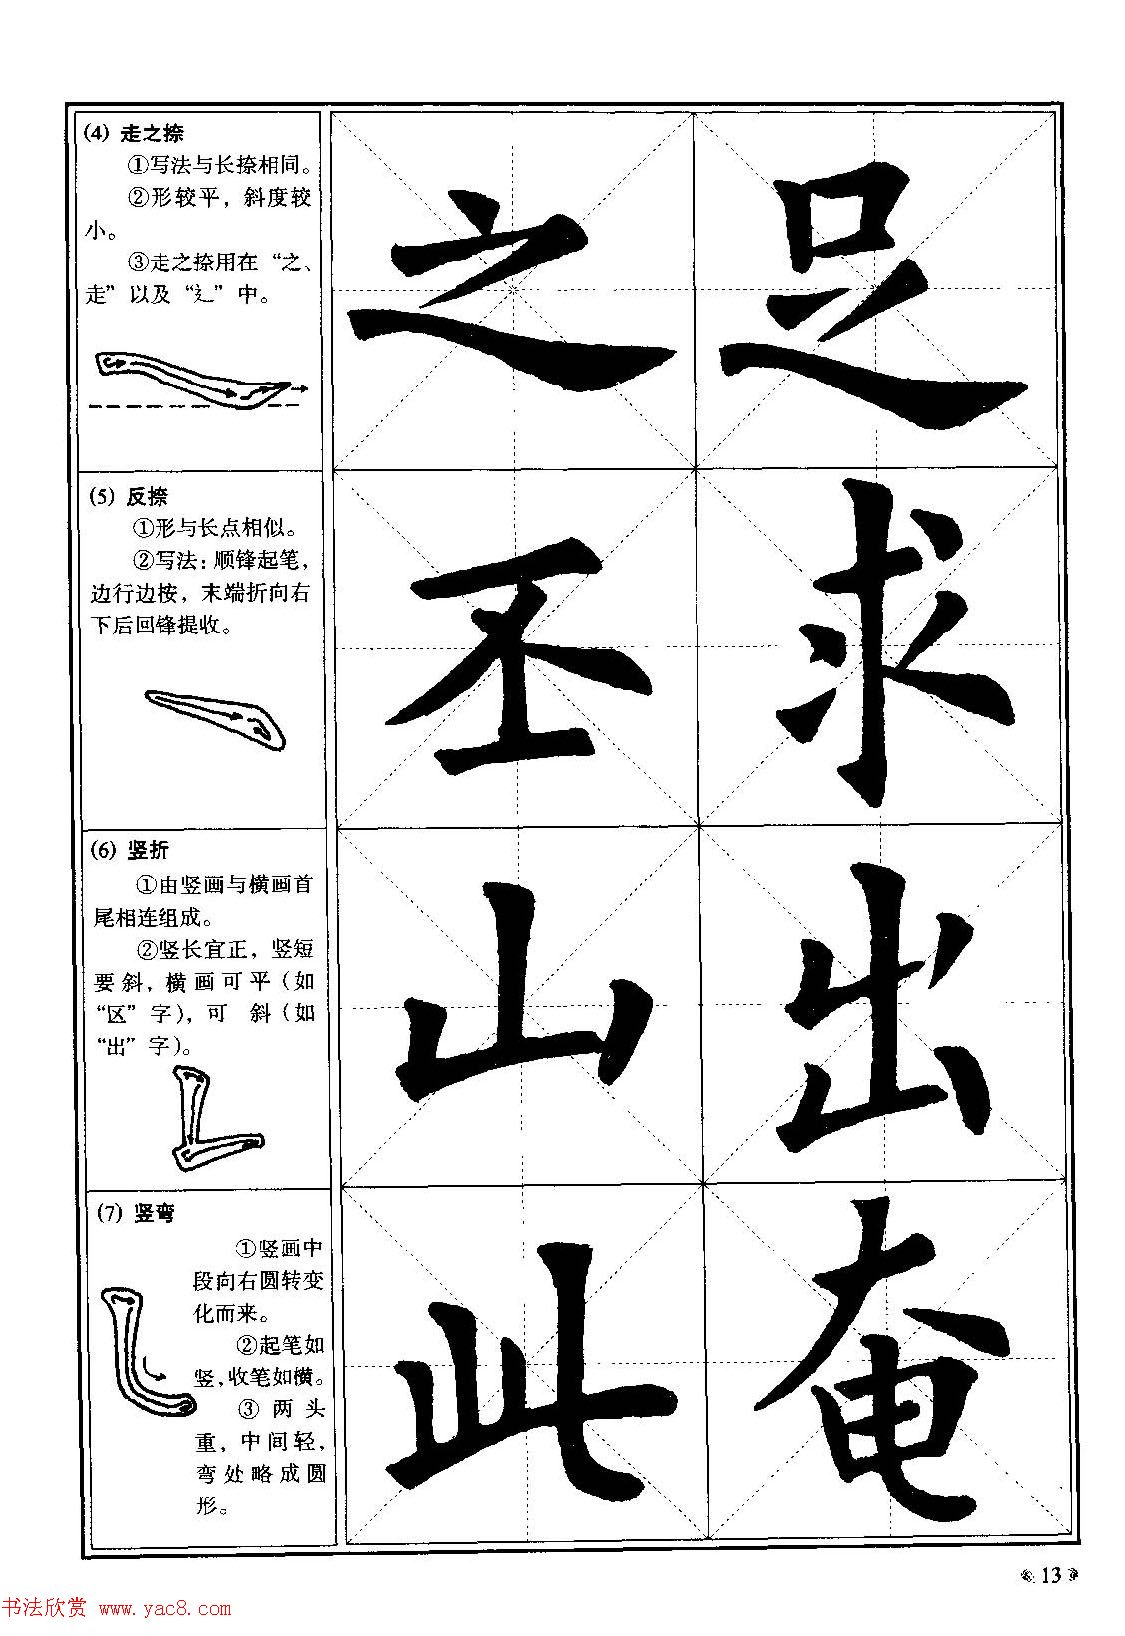 (4) 走之捺
①写法与长捺相同。
②形较平，斜度较
小。
③走之捺用在“之、
走”以及“辶”中。
之 足
(5) 反捺
①形与长点相似。
②写法：顺锋起笔，
边行边桉，末端折向右
下后回锋提收。
丕 求
(6) 竖折
①由竖画与横画首
尾相连组成。
②竖长宜正，竖短
要斜，横画可平（如
“区”字），可 斜（如
“出”字）。
山 出
(7) 竖弯
①竖画中
段向右圆转变
化而来。
②起笔如
竖，收笔如横。
③两头
重，中间轻，
弯处略成圆
形。
此 奄
13
书法欣赏 www.yac8.com